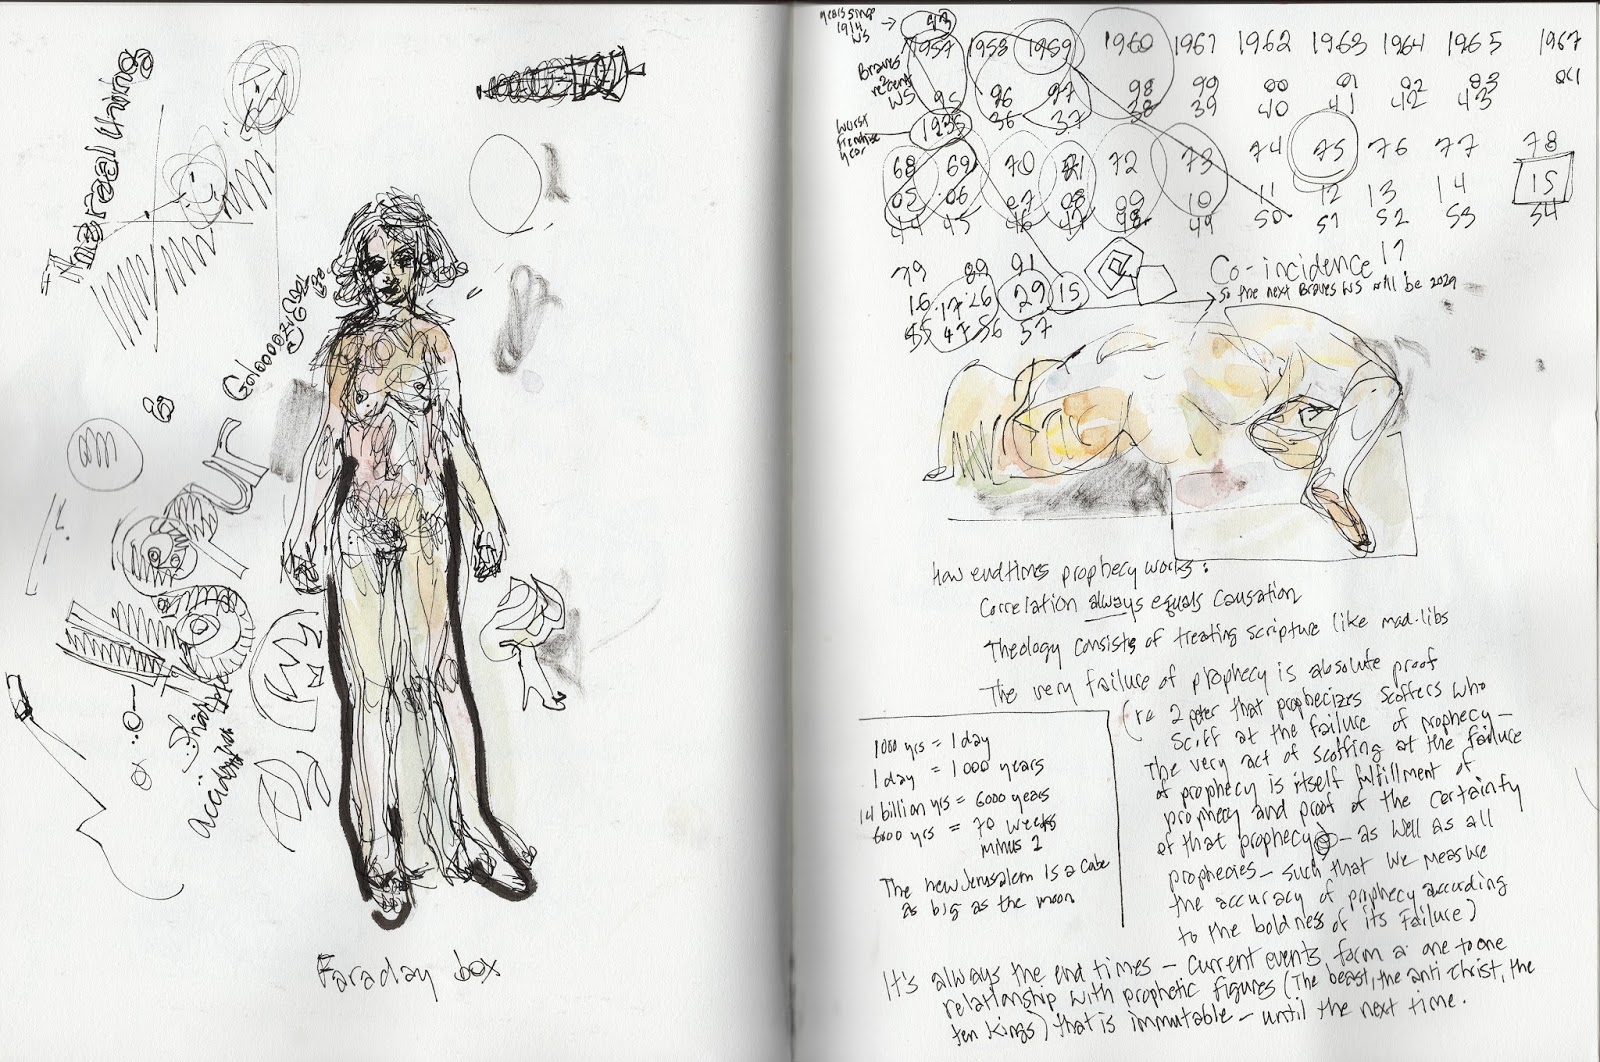 Faraday box
years since
1914
WS
43
1957 1958 1959 1960 1961 1962 1963 1964 1965 1967
Braves
recent
WS
95 96 97 98 99 00 01 02 03
1935 36 37 38 39 40 41 42 43
worst
franchise
year
68 69 70 71 72 73 74 75 76 77 78
05 06 07 08 09 10 11 12 13 14 15
44 45 46 47 48 49 50 51 52 53 54
79 89 91
16 17 26 29 15
55 47 56 57
Co-incidence
17
so the next Braves WS will be 2029
How endtimes prophecy works:
Correlation always equals causation
Theology consists of treating scripture like mad-libs
The very failure of prophecy is absolute proof
(re 2 peter that prophecizes scoffers who
scoff at the failure of prophecy –
The very act of scoffing at the failure
of prophecy is itself fulfillment of
prophecy and proof of the certainty
of that prophecy – as well as all
prophecies – such that we measure
the accuracy of prophecy according
to the boldness of its failure)
1000 yrs = 1 day
1 day = 1000 years
14 billion yrs = 6000 years
6000 yrs = 70 weeks
minus 1
The new Jerusalem is a cube
as big as the moon
It's always the end times – current events form a one to one
relationship with prophetic figures (The beast, the anti christ, the
ten kings) that is immutable – until the next time.